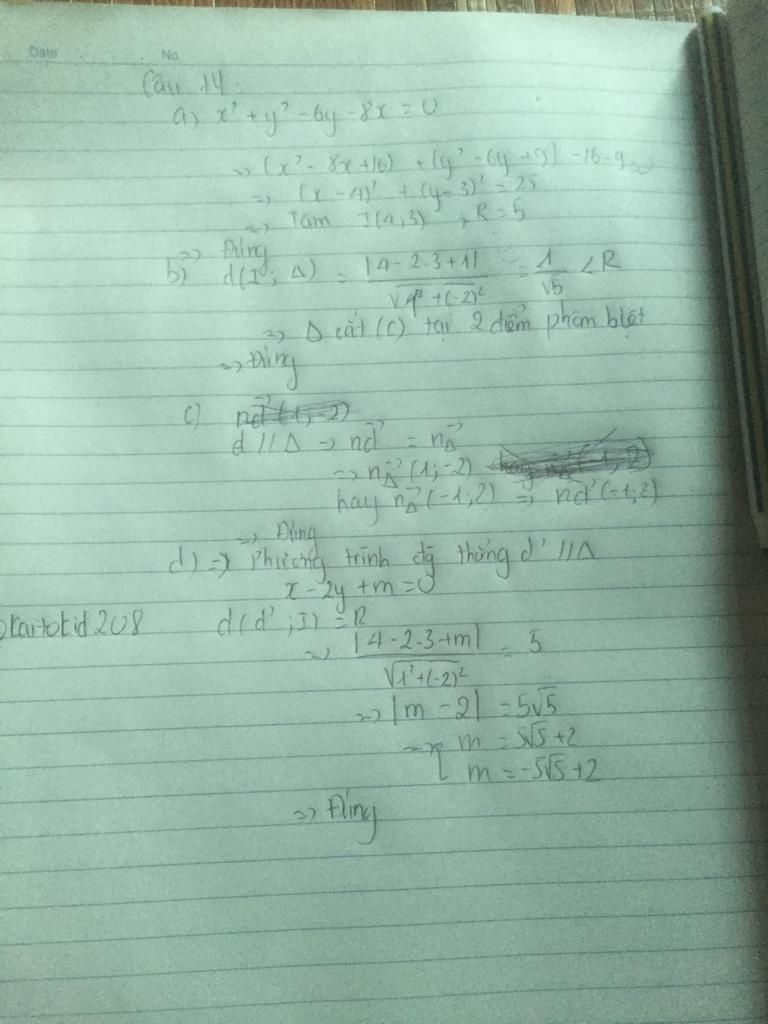 Date No
Câu 14:
a) x² + y² - 6y - 8x = 0
=> (x² - 8x + 16) + (y² - 6y + 9) - 16 - 9 = 0
=> (x - 4)² + (y - 3)² = 25
=> Tâm I(4,3) , R = 5
=> Đúng
b) d(I; Δ) = |4 - 2.3 + 1| / √(1² + (-2)²) = 1/√5 < R
=> Δ cắt (C) tại 2 điểm phân biệt
=> Đúng
c) nd→ (1; -2)
d // Δ => nd→ = nΔ→
=> nΔ→ (1; -2)
hay nΔ→ (-1; 2) => nd→ (-1; 2)
=> Đúng
d) => Phương trình đg thẳng d' // Δ
x - 2y + m = 0
d(d'; I) = R
=> |4 - 2.3 + m| / √(1² + (-2)²) = 5
=> |m - 2| = 5√5
=> [ m = 5√5 + 2
m = -5√5 + 2
=> Đúng